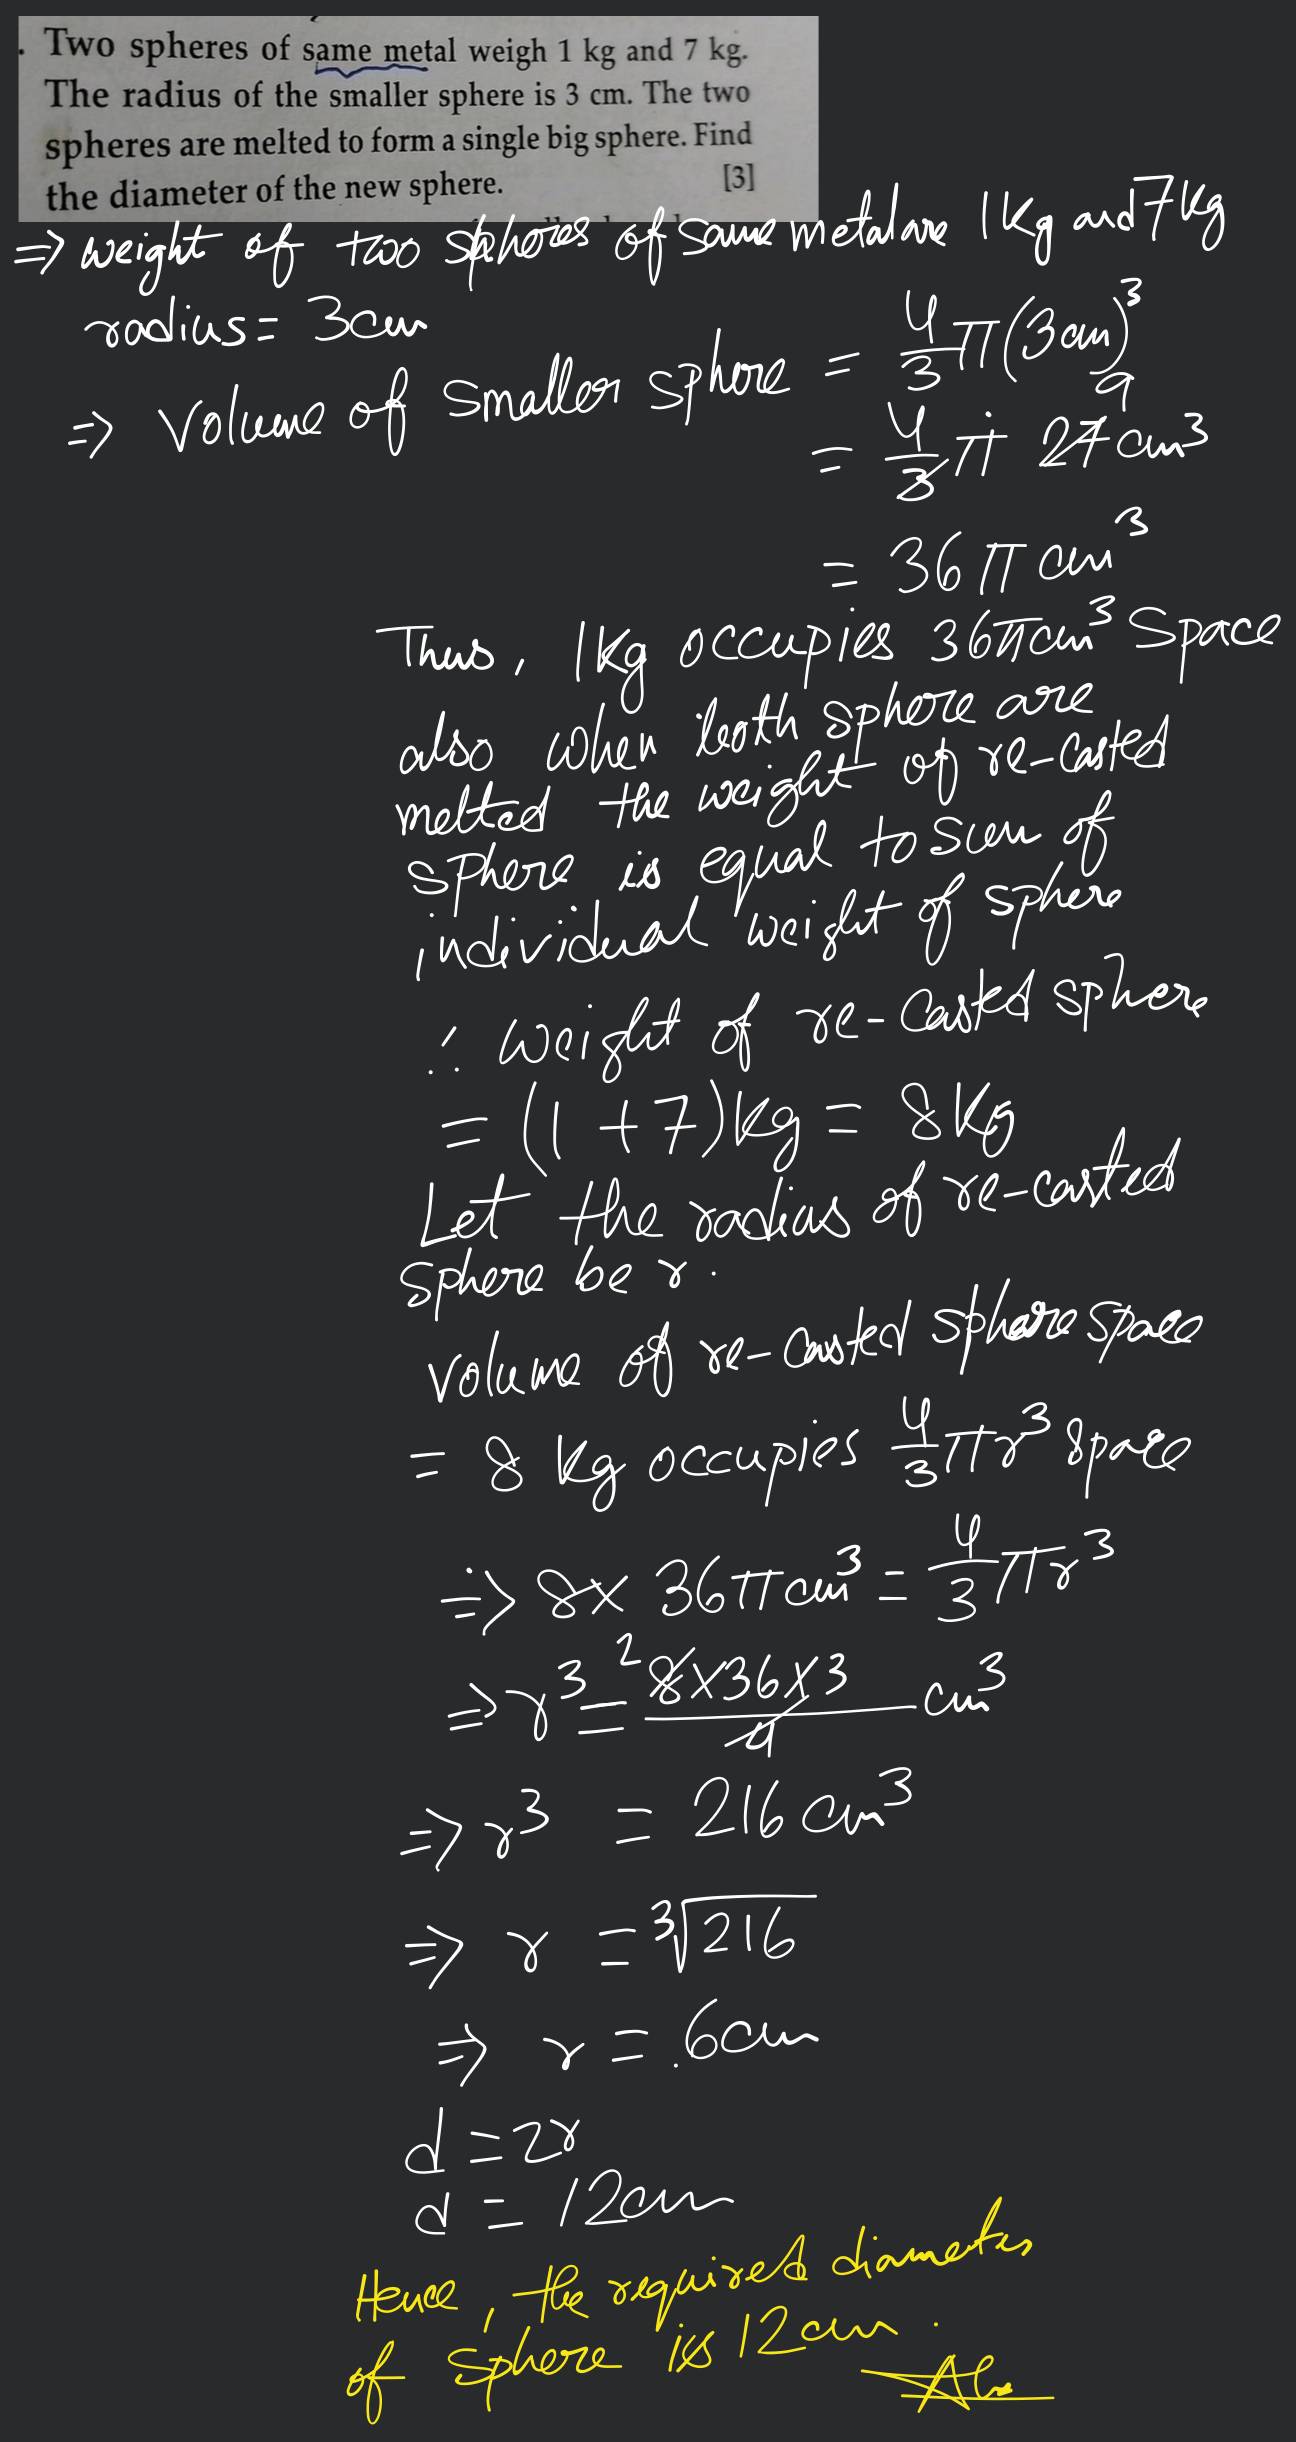 . Two spheres of same metal weigh 1 kg and 7 kg.
The radius of the smaller sphere is 3 cm. The two
spheres are melted to form a single big sphere. Find
the diameter of the new sphere. [3]
=> weight of two spheres of same metal are 1 Kg and 7 Kg
radius = 3cm
=> Volume of smaller sphere = 4/3 π(3cm)³
= 4/3 π 27 cm³ 9
= 36 π cm³
Thus, 1Kg occupies 36πcm³ Space
also when both sphere are
melted the weight of re-casted
sphere is equal to sum of
individual weight of sphere
∴ weight of re-casted sphere
= (1 + 7) kg = 8 Kg
Let the radius of re-casted
sphere be r.
volume of re-casted sphare space
= 8 Kg occupies 4/3 πr³ space
=> 8 x 36 π cm³ = 4/3 πr³
=> r³ = 2 8x36x3/4 cm³
=> r³ = 216 cm³
=> r = ³√216
=> r = 6cm
d = 2r
d = 12cm
Hence, the required diameter
of sphere is 12cm.
Ans